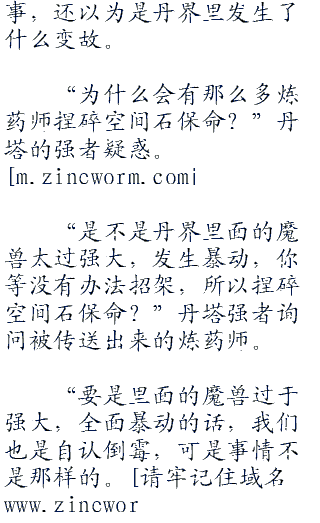 事，还以为是丹界里发生了
什么变故。
“为什么会有那么多炼
药师捏碎空间石保命？”丹
塔的强者疑惑。
[m.zincworm.com]
“是不是丹界里面的魔
兽太过强大，发生暴动，你
等没有办法招架，所以捏碎
空间石保命？”丹塔强者询
问被传送出来的炼药师。
“要是里面的魔兽过于
强大，全面暴动的话，我们
也是自认倒霉，可是事情不
是那样的。[请牢记住域名
www.zincwor